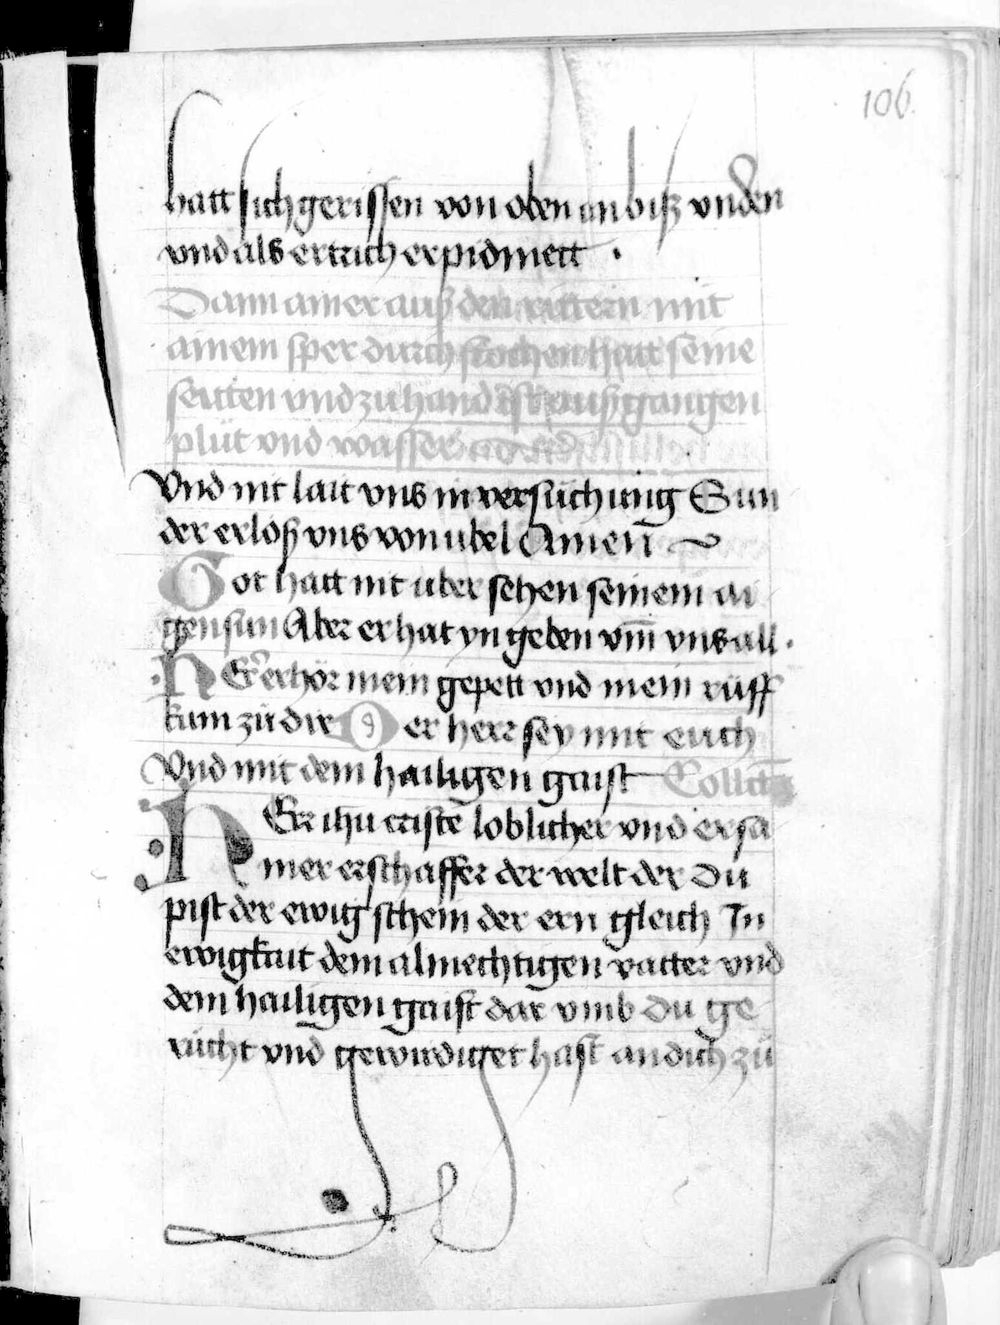 106.
hatt sich gerissen von oben an biß vnden
vnd als ertrich erpidmett .
Dann ainer auß den rittern mit
ainem sper durch stochen hatt seine
seitten vnd zuhand ist außgangen
plüt vnd wasser
Vnd nit lait vns in versüchung Sun
der erloß vns von übel Amen
Got hatt nit über sehen seinem ai
gen sun Aber er hat yn geben vm̄ vns all .
HEr erhör mein gepett vnd mein rüff
kum zü dir Der herr sey mit euch
Vnd mit dem hailigen gaist Collect̄
HEr ihū criste loblicher vnd ersa
mer erschaffer der welt der Du
pist der ewig schein der ern gleich In
ewigkait dem almechtigen vatter vnd
dem hailigen gaist dar vmb Du ge
rücht vnd gewirdiget hast an dich zü